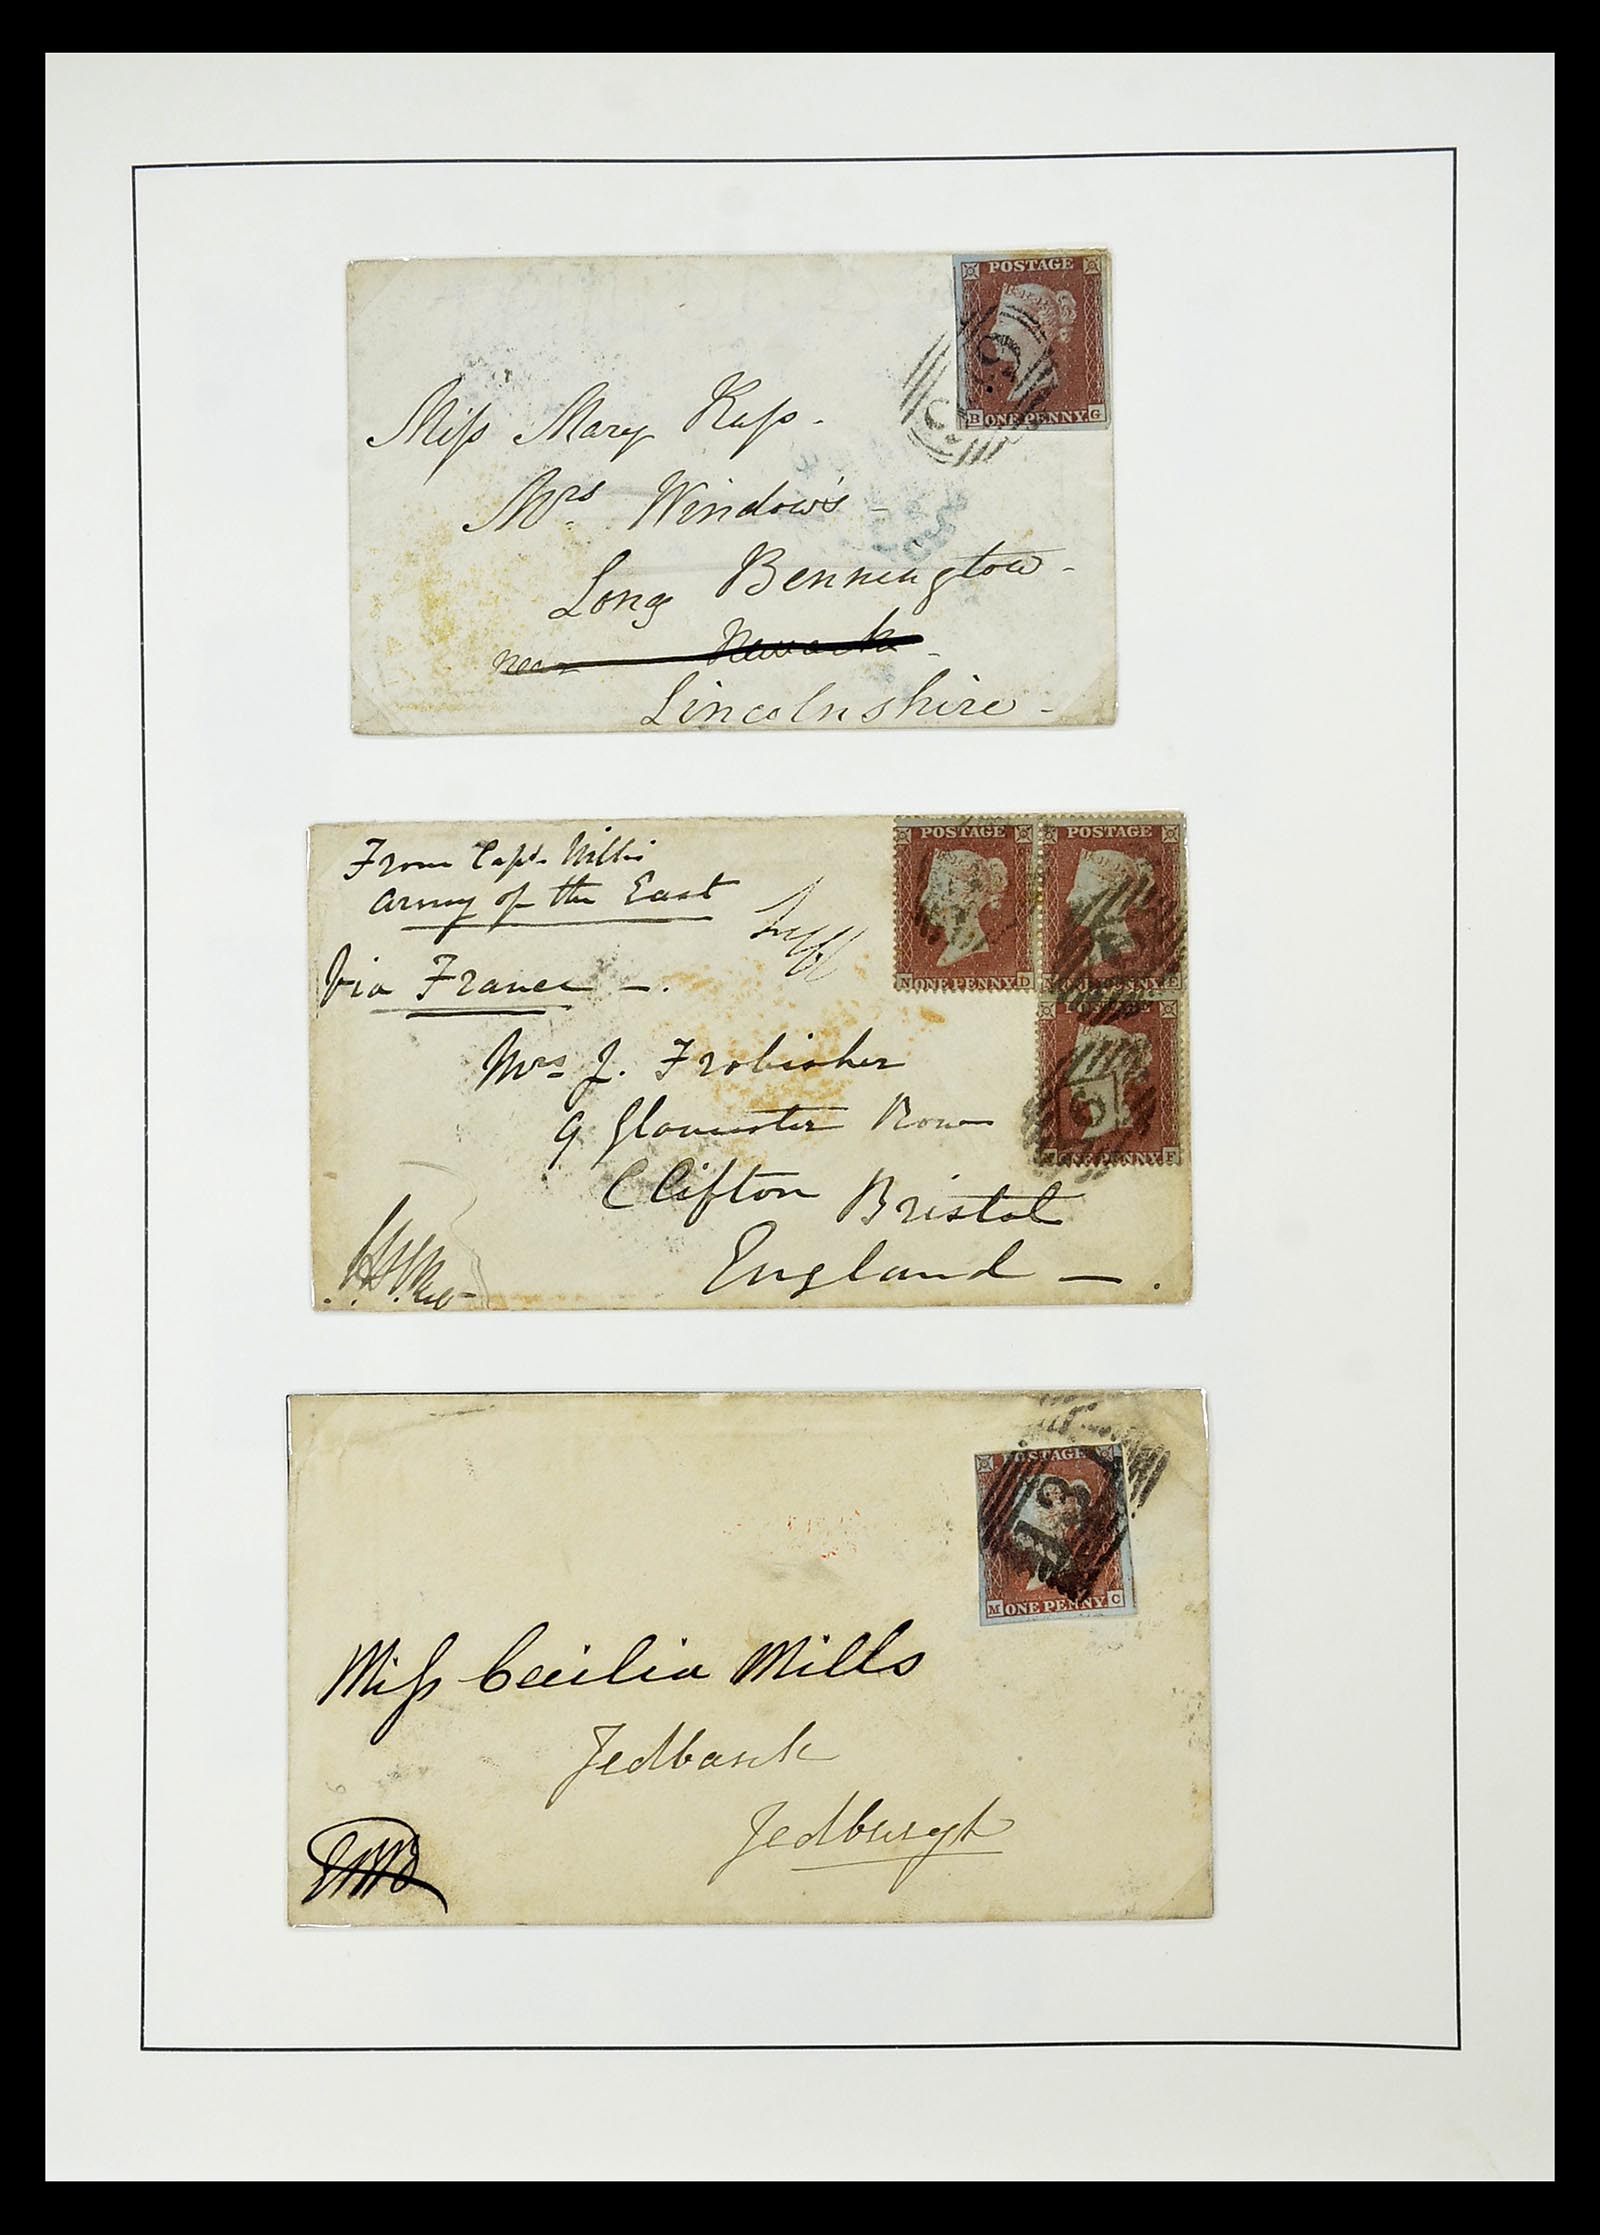 POSTAGE
B ONE PENNY G
Miss Mary
Mrs Window's
Long Bennington
near Newark
Lincolnshire
From Capt.
Army of the East
Via France
POSTAGE POSTAGE
N ONE PENNY D
POSTAGE
ONE PENNY F
Mrs J. Frobisher
9 Gloucester Row
Clifton Bristol
England
POSTAGE
131
M ONE PENNY C
Miss Cecilia Mills
Jedbank
Jedburgh